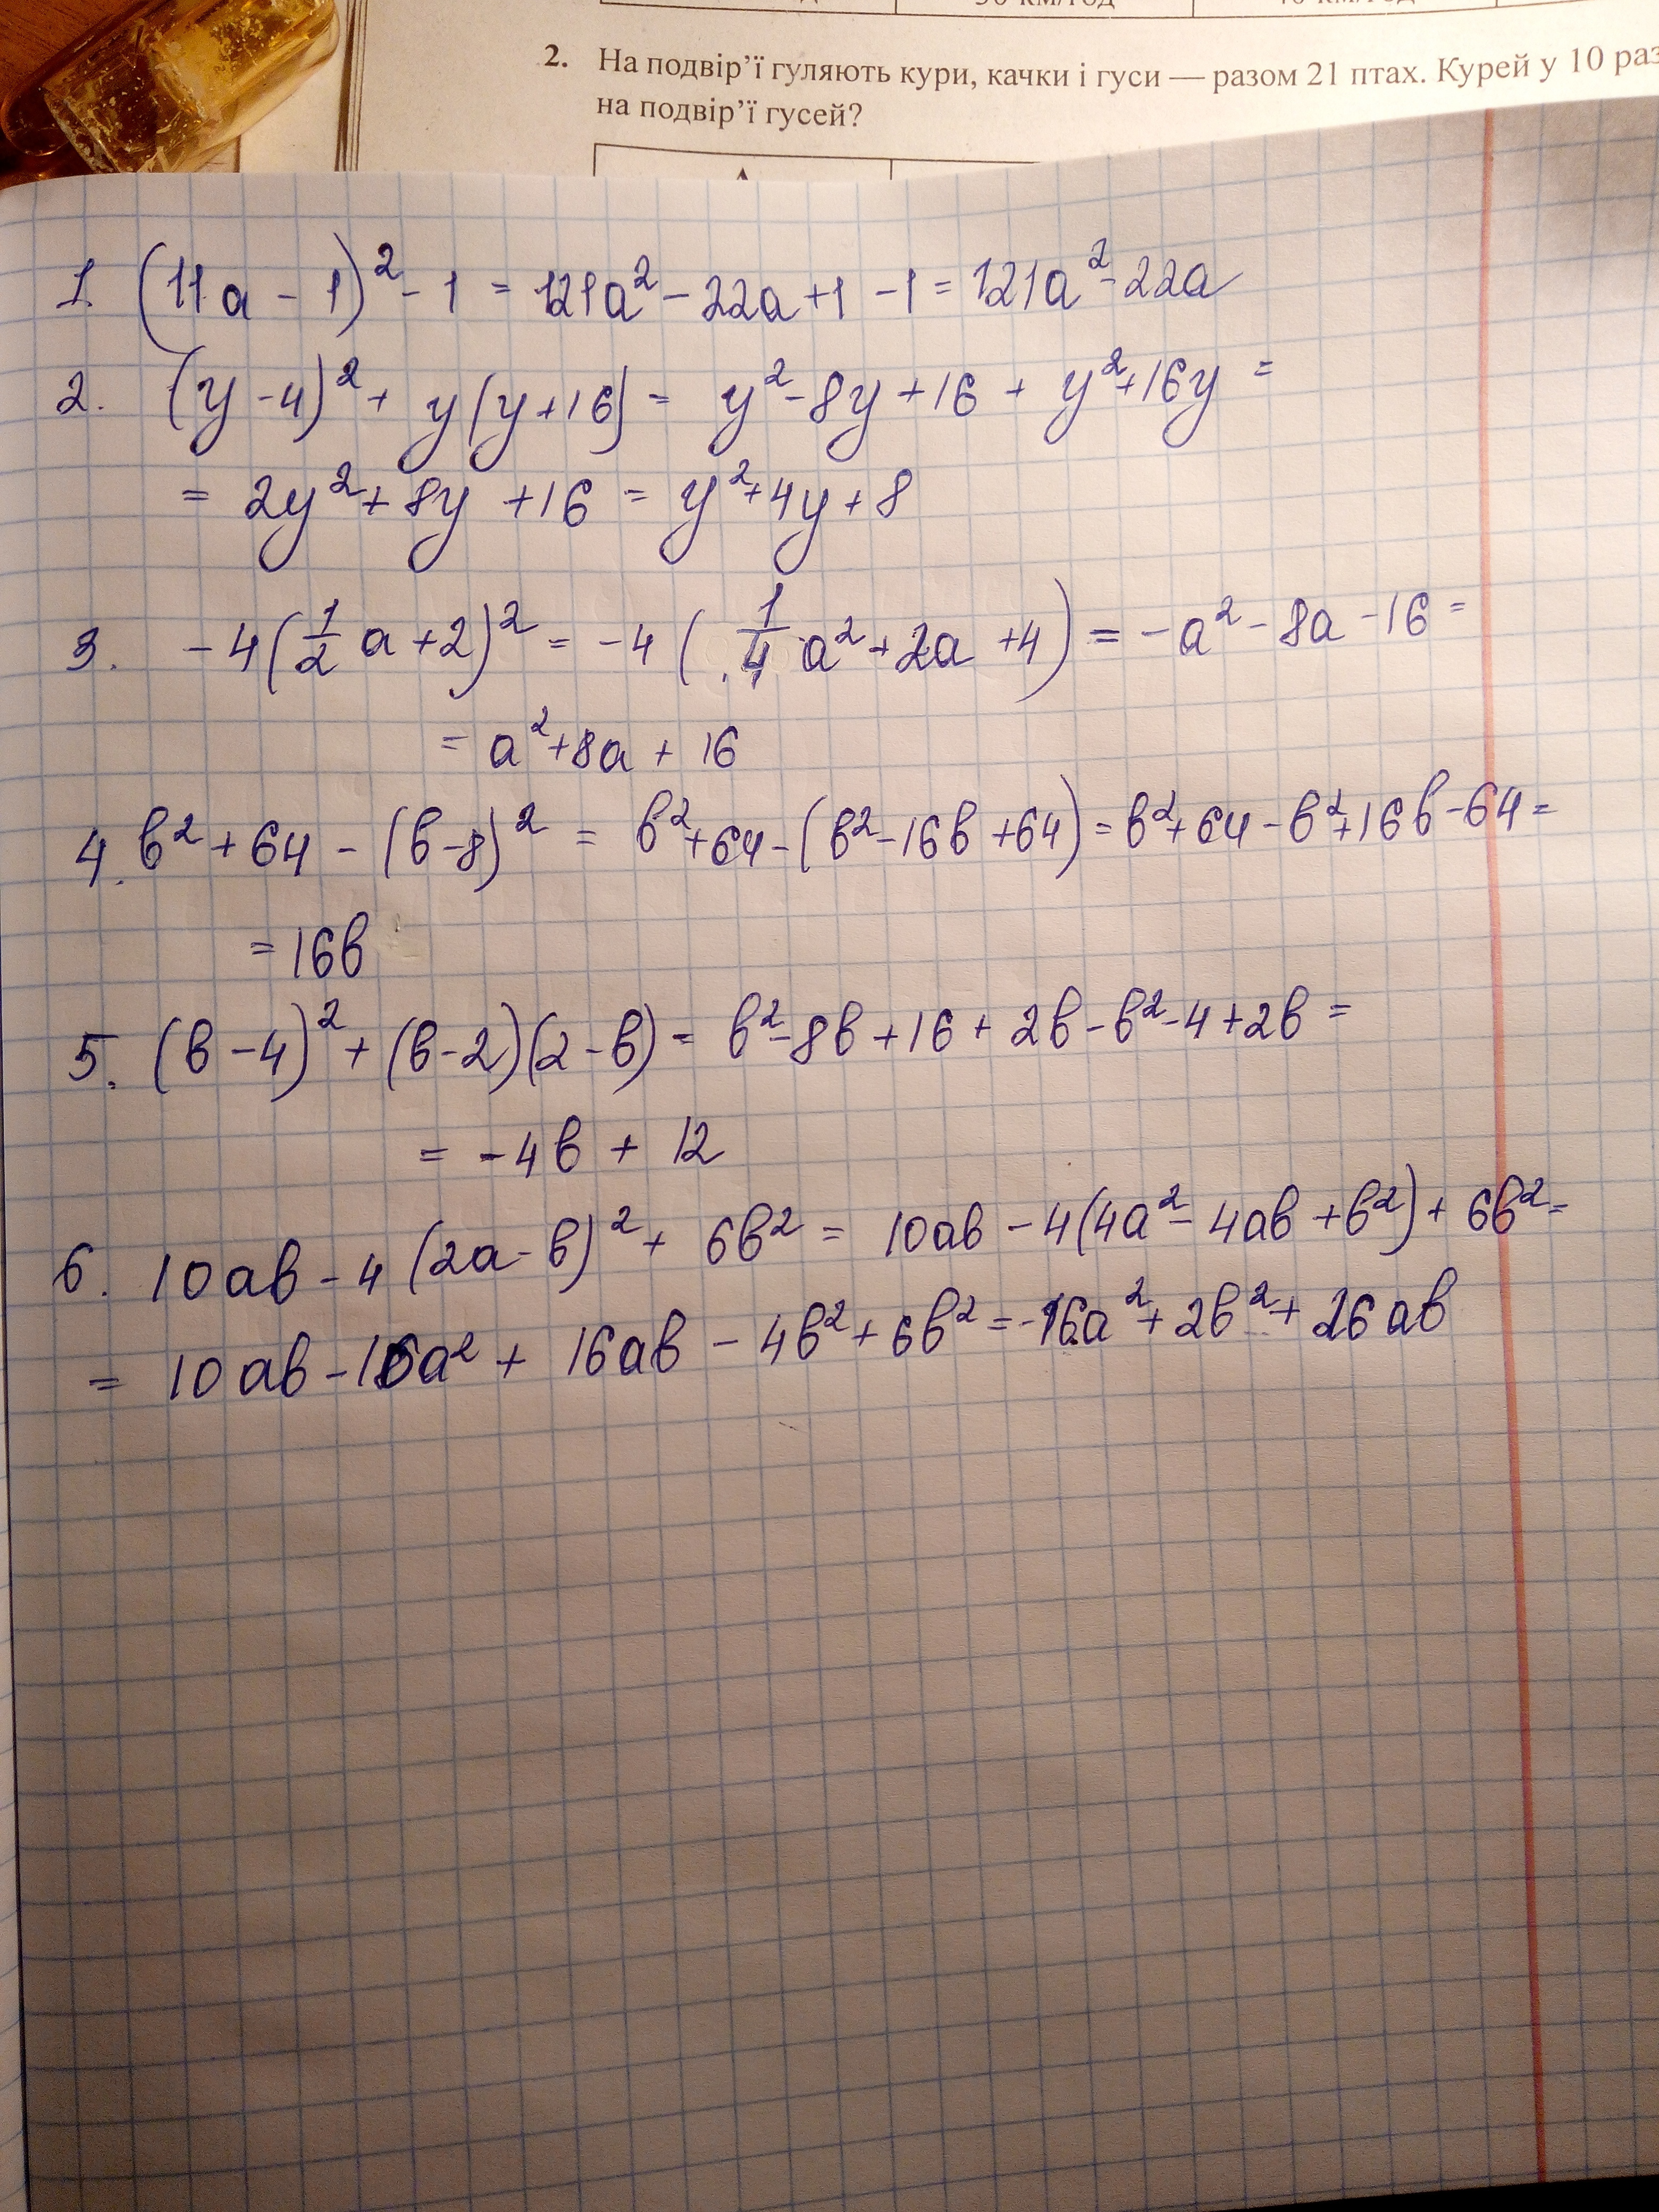 30 км/год
2. На подвір’ї гуляють кури, качки і гуси — разом 21 птах. Курей у 10 раз
на подвір’ї гусей?
1. (11a - 1)² - 1 = 121a² - 22a + 1 - 1 = 121a² - 22a
2. (y - 4)² + y(y + 16) = y² - 8y + 16 + y² + 16y =
= 2y² + 8y + 16 = y² + 4y + 8
3. -4(1/2 a + 2)² = -4(1/4 a² + 2a + 4) = -a² - 8a - 16 =
= a² + 8a + 16
4. b² + 64 - (b - 8)² = b² + 64 - (b² - 16b + 64) = b² + 64 - b² + 16b - 64 =
= 16b
5. (b - 4)² + (b - 2)(2 - b) = b² - 8b + 16 + 2b - b² - 4 + 2b =
= -4b + 12
6. 10ab - 4(2a - b)² + 6b² = 10ab - 4(4a² - 4ab + b²) + 6b² =
= 10ab - 16a² + 16ab - 4b² + 6b² = -16a² + 2b² + 26ab